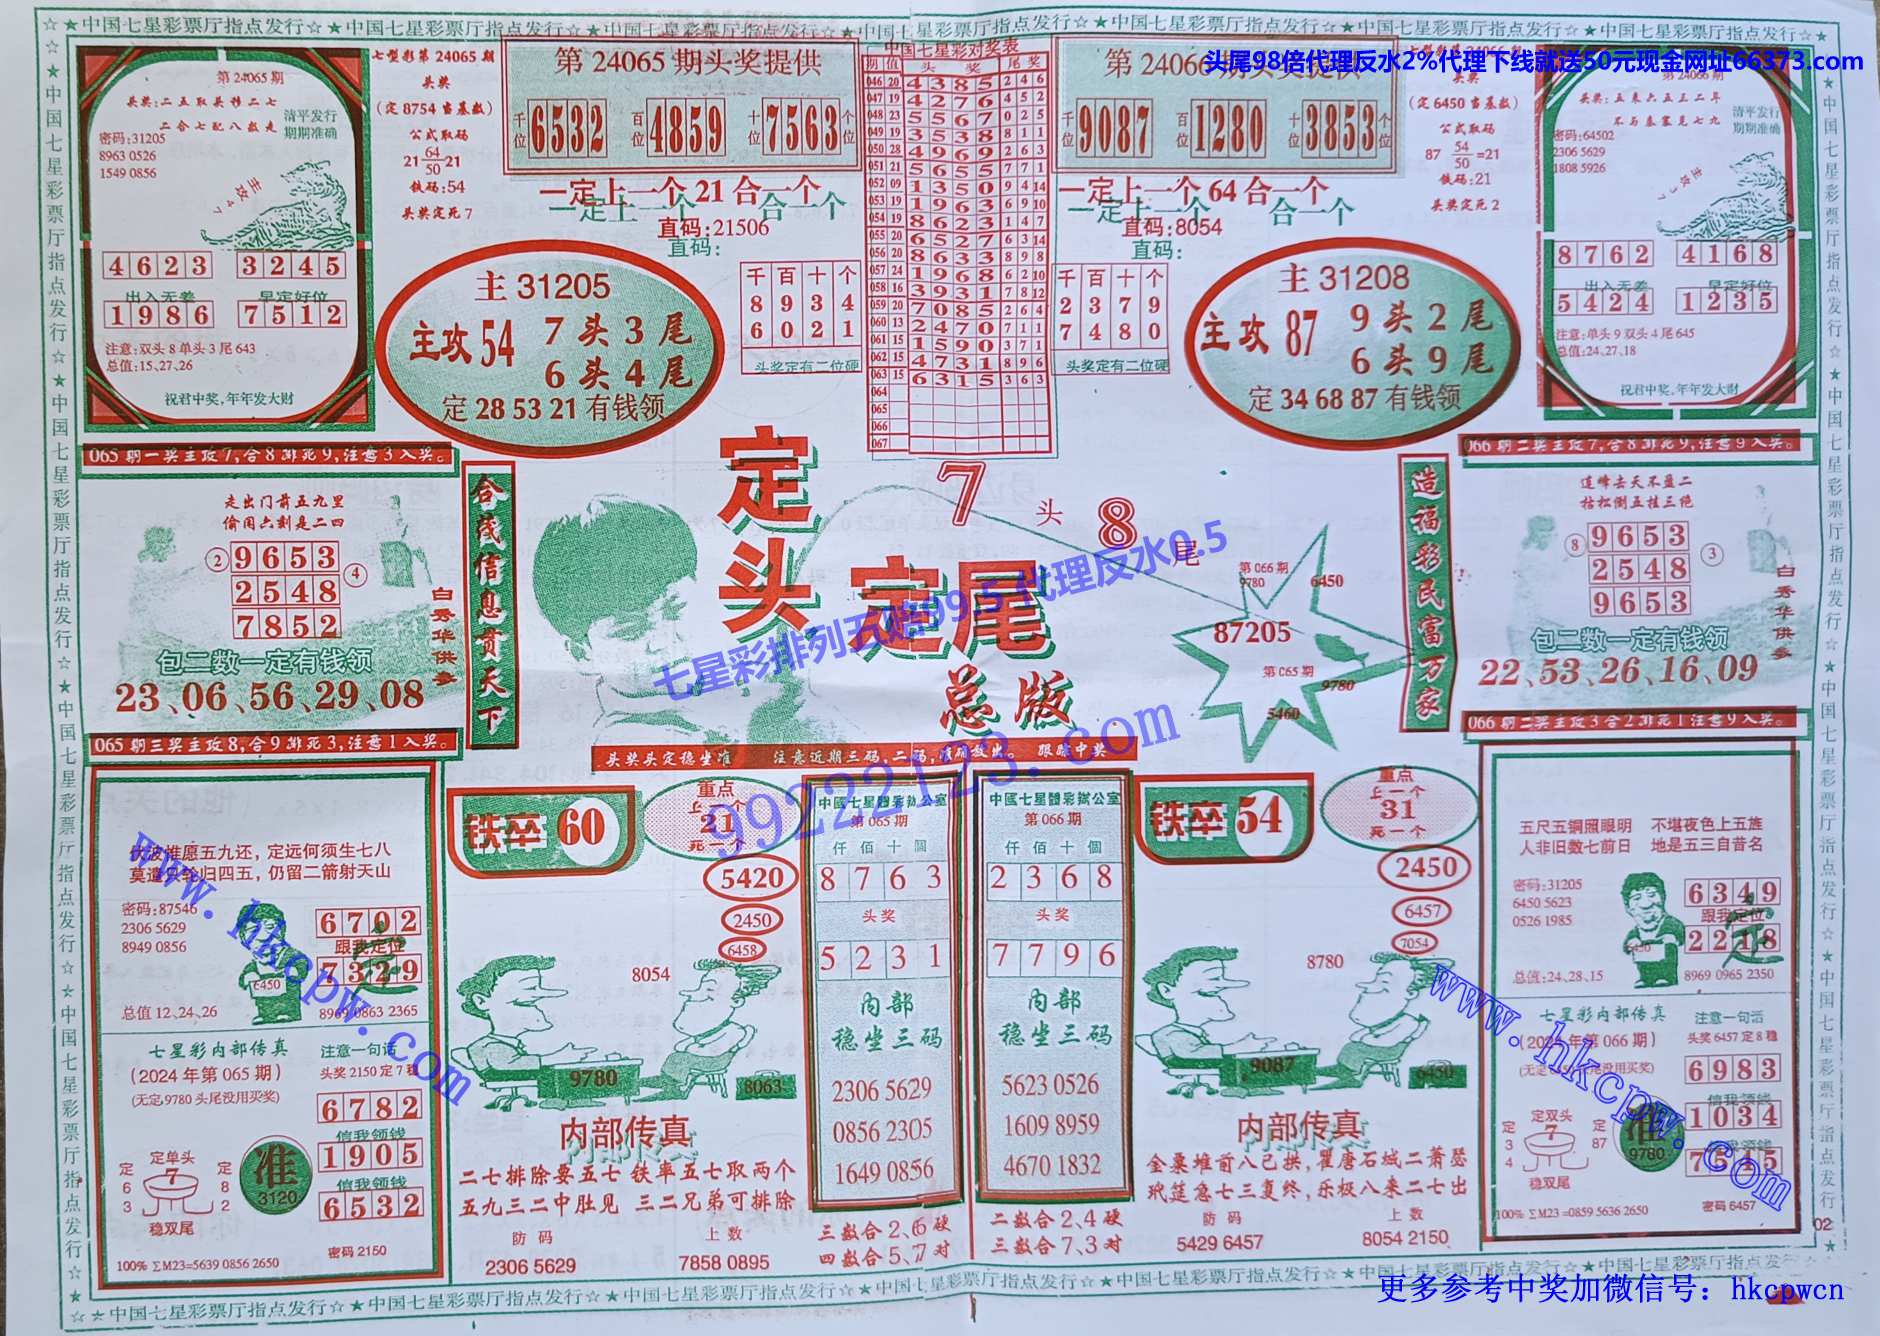 ☆★中国七星彩票厅指点发行☆★中国七星彩票厅指点发行☆★中国七星彩票厅指点发行☆★中国七星彩票厅指点发行☆★中国七星彩票厅指点发行☆★中国七星彩票厅指点发行☆★
头尾98倍代理反水2%代理下线就送50元现金网址66373.com
第24065期
头奖:二五取头移二七
二合七配八数走
清平发行
期期准确
密码:31205
8963 0526
1549 0856
主攻47
4623 3245
出入无差 早定好位
1986 7512
注意:双头8单头3尾643
总值:15、27、26
祝君中奖,年年发大财
七型彩第24065期
头奖
(定8754当基数)
公式取码
21 64/50 21
铁码:54
头奖定死7
第24065期头奖提供
千位 6532 百位 4859 十位 7563 个位
一定上一个21合一个
一定上一个 合一个
直码:21506
直码:
主31205
主攻54 7头3尾
6头4尾
定28 53 21有钱领
千百十个
8934
6021
头奖定有二位硬
中国七星彩对奖表
期 值 头奖 尾奖
046 20 4385 2 4 6
047 19 4276 4 5 2
048 23 5567 0 2 5
049 19 3538 8 1 1
050 28 4969 2 6 3
051 21 5655 7 7 1
052 09 1350 9 4 14
053 19 1963 6 9 10
054 19 8623 1 4 7
055 20 6527 6 3 14
056 20 8633 8 9 8
057 24 1968 6 2 10
058 16 3931 7 8 12
059 20 7085 2 6 4
060 13 2470 7 1 1
061 15 1590 3 7 1
062 15 4731 8 9 6
063 15 6315 3 6 3
064
065
066
067
第24066期头奖提供
千位 9087 百位 1280 十位 3853 个位
一定上一个64合一个
一定上一个 合一个
直码:8054
直码:
千百十个
2379
7480
头奖定有二位硬
主31208
主攻87 9头2尾
6头9尾
定34 68 87有钱领
头奖
(定6450当基数)
公式取码
87 54/50 =21
铁码:21
头奖定死2
第24066期
头奖:五来六五三二年
不与秦塞见七九
清平发行
期期准确
密码:64502
2306 5629
1808 5926
主攻37
8762 4168
出入无差 早定好位
5424 1235
注意:单头9双头4尾645
总值:24、27、18
祝君中奖,年年发大财
065期一奖主攻7,合8排死9,注意3入奖。
066期二奖主攻7,合8排死9,注意9入奖。
走出门前五九里
偷闲六刻是二四
② 9653
2548 ④
7852
白秀华供参
包二数一定有钱领
23、06、56、29、08
合线信息贯天下
定头定尾
7头8尾
总版
七星彩排列五赔99.5 代理反水0.5
99222123.com
第066期
9780
6450
87205
第065期
9780
5460
造福彩民富万家
遥峰去天不盈二
枯松倒五挂三绝
⑧ 9653
2548 ③
9653
白秀华供参
包二数一定有钱领
22、53、26、16、09
065期三奖主攻8,合9排死3,注意1入奖。
头奖头定稳坐准 注意近期三码,二码,准确放出。 跟踪中奖
066期二奖主攻3合2排死1注意9入奖。
伏波惟愿五九还,定远何须生七八
莫遣只轮归四五,仍留二箭射天山
密码:87546
2306 5629
8949 0856
6450
6702
跟我定位
7329
总值12、24、26
8969 0863 2365
七星彩内部传真
(2024年第065期)
(无定9780头尾没用买奖)
注意一句话
头奖2150定7稳
6782
信我领钱
1905
信我领钱
6532
定单头
7
定63 定82
稳双尾
准
3120
100% ∑M23=5639 0856 2650
密码2150
铁卒60
重点
上一个
21
死一个
5420
2450
6458
8054
9780
8063
内部传真
二七排除要五七 铁率五七取两个
五九三二中肚见 三二兄弟可排除
防码 上数
2306 5629 7858 0895
中國七星體彩辦公室
第065期
仟佰十個
8763
头奖
5231
内部
稳坐三码
2306 5629
0856 2305
1649 0856
三数合2、6硬
四数合5、7对
中國七星體彩辦公室
第066期
仟佰十個
2368
头奖
7796
内部
稳坐三码
5623 0526
1609 8959
4670 1832
二数合2、4硬
三数合7、3对
铁卒54
重点
上一个
31
死一个
2450
6457
7054
8780
9087
6450
内部传真
金粟堆前八已拱,瞿唐石城二萧瑟
玳筵急七三复终,乐极八来二七出
防码 上数
5429 6457 8054 2150
五尺五铜照眼明 不堪夜色上五旌
人非旧数七前日 地是五三自昔名
密码:31205
6450 5623
0526 1985
6450
6349
跟我定位
2218
总值:24、28、15
8969 0965 2350
七星彩内部传真
(2024年第066期)
注意一句话
头奖6457定8稳
6983
信我领钱
1034
7545
定双头
7
定34 定87
稳双尾
准
9780
100% ∑M23=0859 5636 2650
密码6457
02
www.hkcpw.com
www.hkcpw.com
☆★中国七星彩票厅指点发行☆★中国七星彩票厅指点发行☆★中国七星彩票厅指点发行☆★中国七星彩票厅指点发行☆★中国七星彩票厅指点发行☆★
更多参考中奖加微信号: hkcpwcn